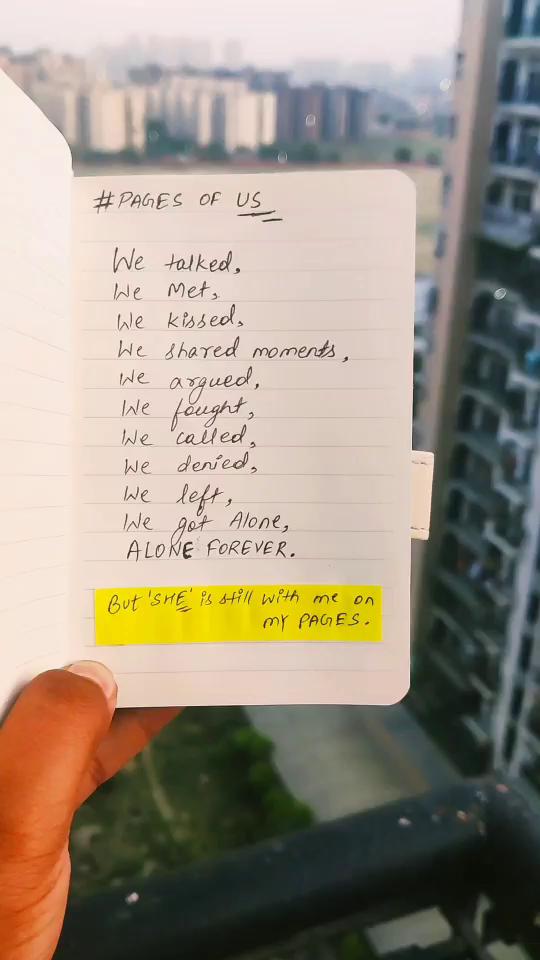 #PAGES OF US
We talked,
We Met,
We kissed,
We shared moments,
We argued,
We fought,
We called,
We denied,
We left,
We got Alone,
ALONE FOREVER.
But 'SHE' is still with me on
my PAGES.